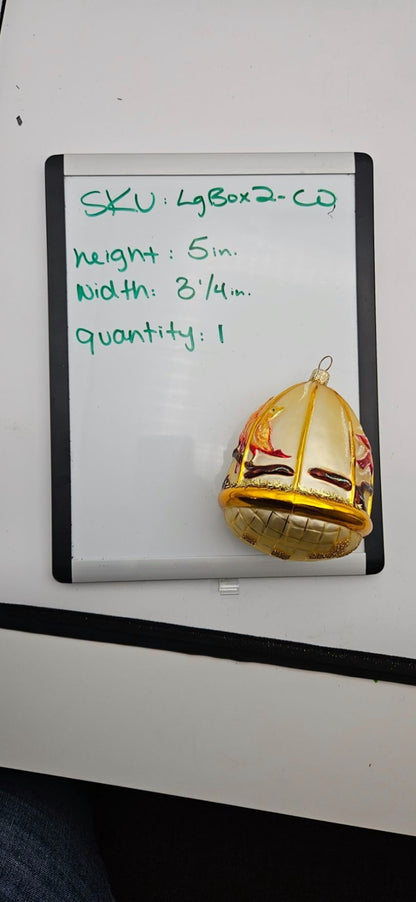 SKU: LgBox2-CO
height: 5in.
Width: 3 1/4in.
quantity: 1